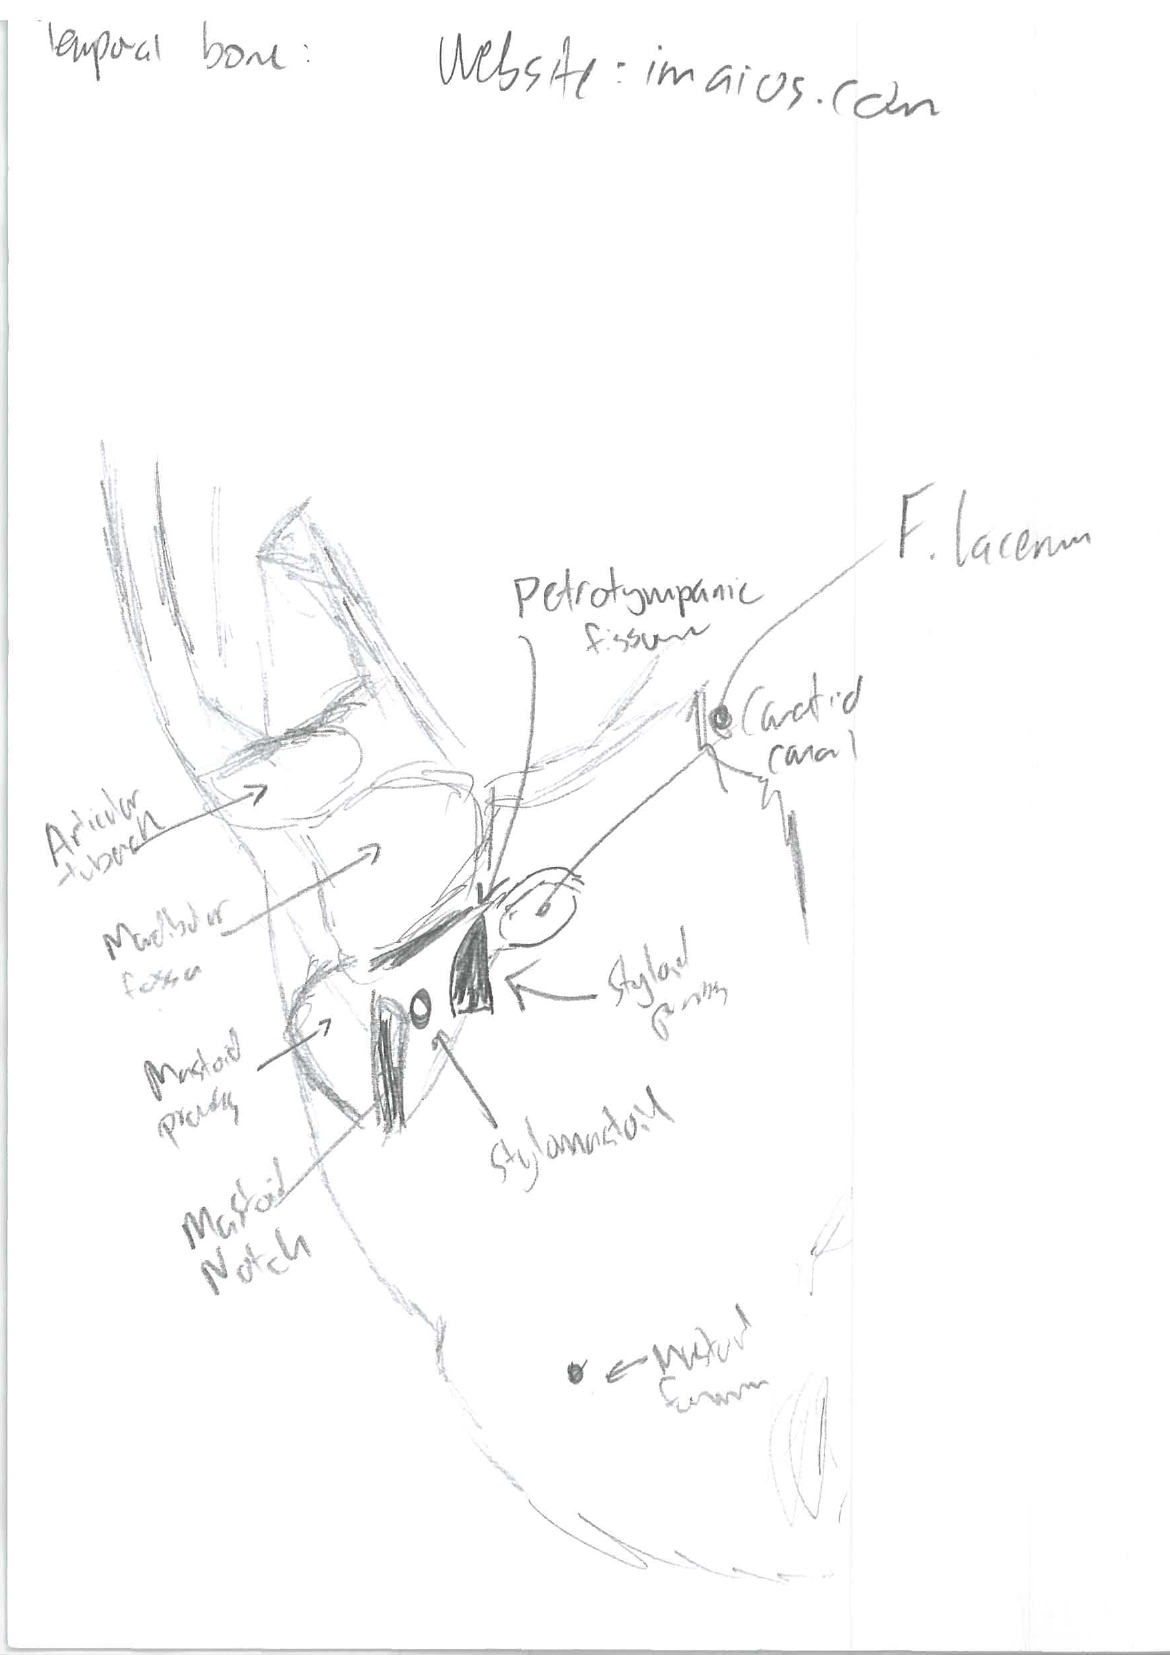 Temporal bone:
Website: imaios.com
F. lacerum
Petrotympanic
fissure
Carotid
canal
Articular
Mandibular
fossa
Styloid
Mastoid
Stylomastoid
Mastoid
Notch
Mastoid